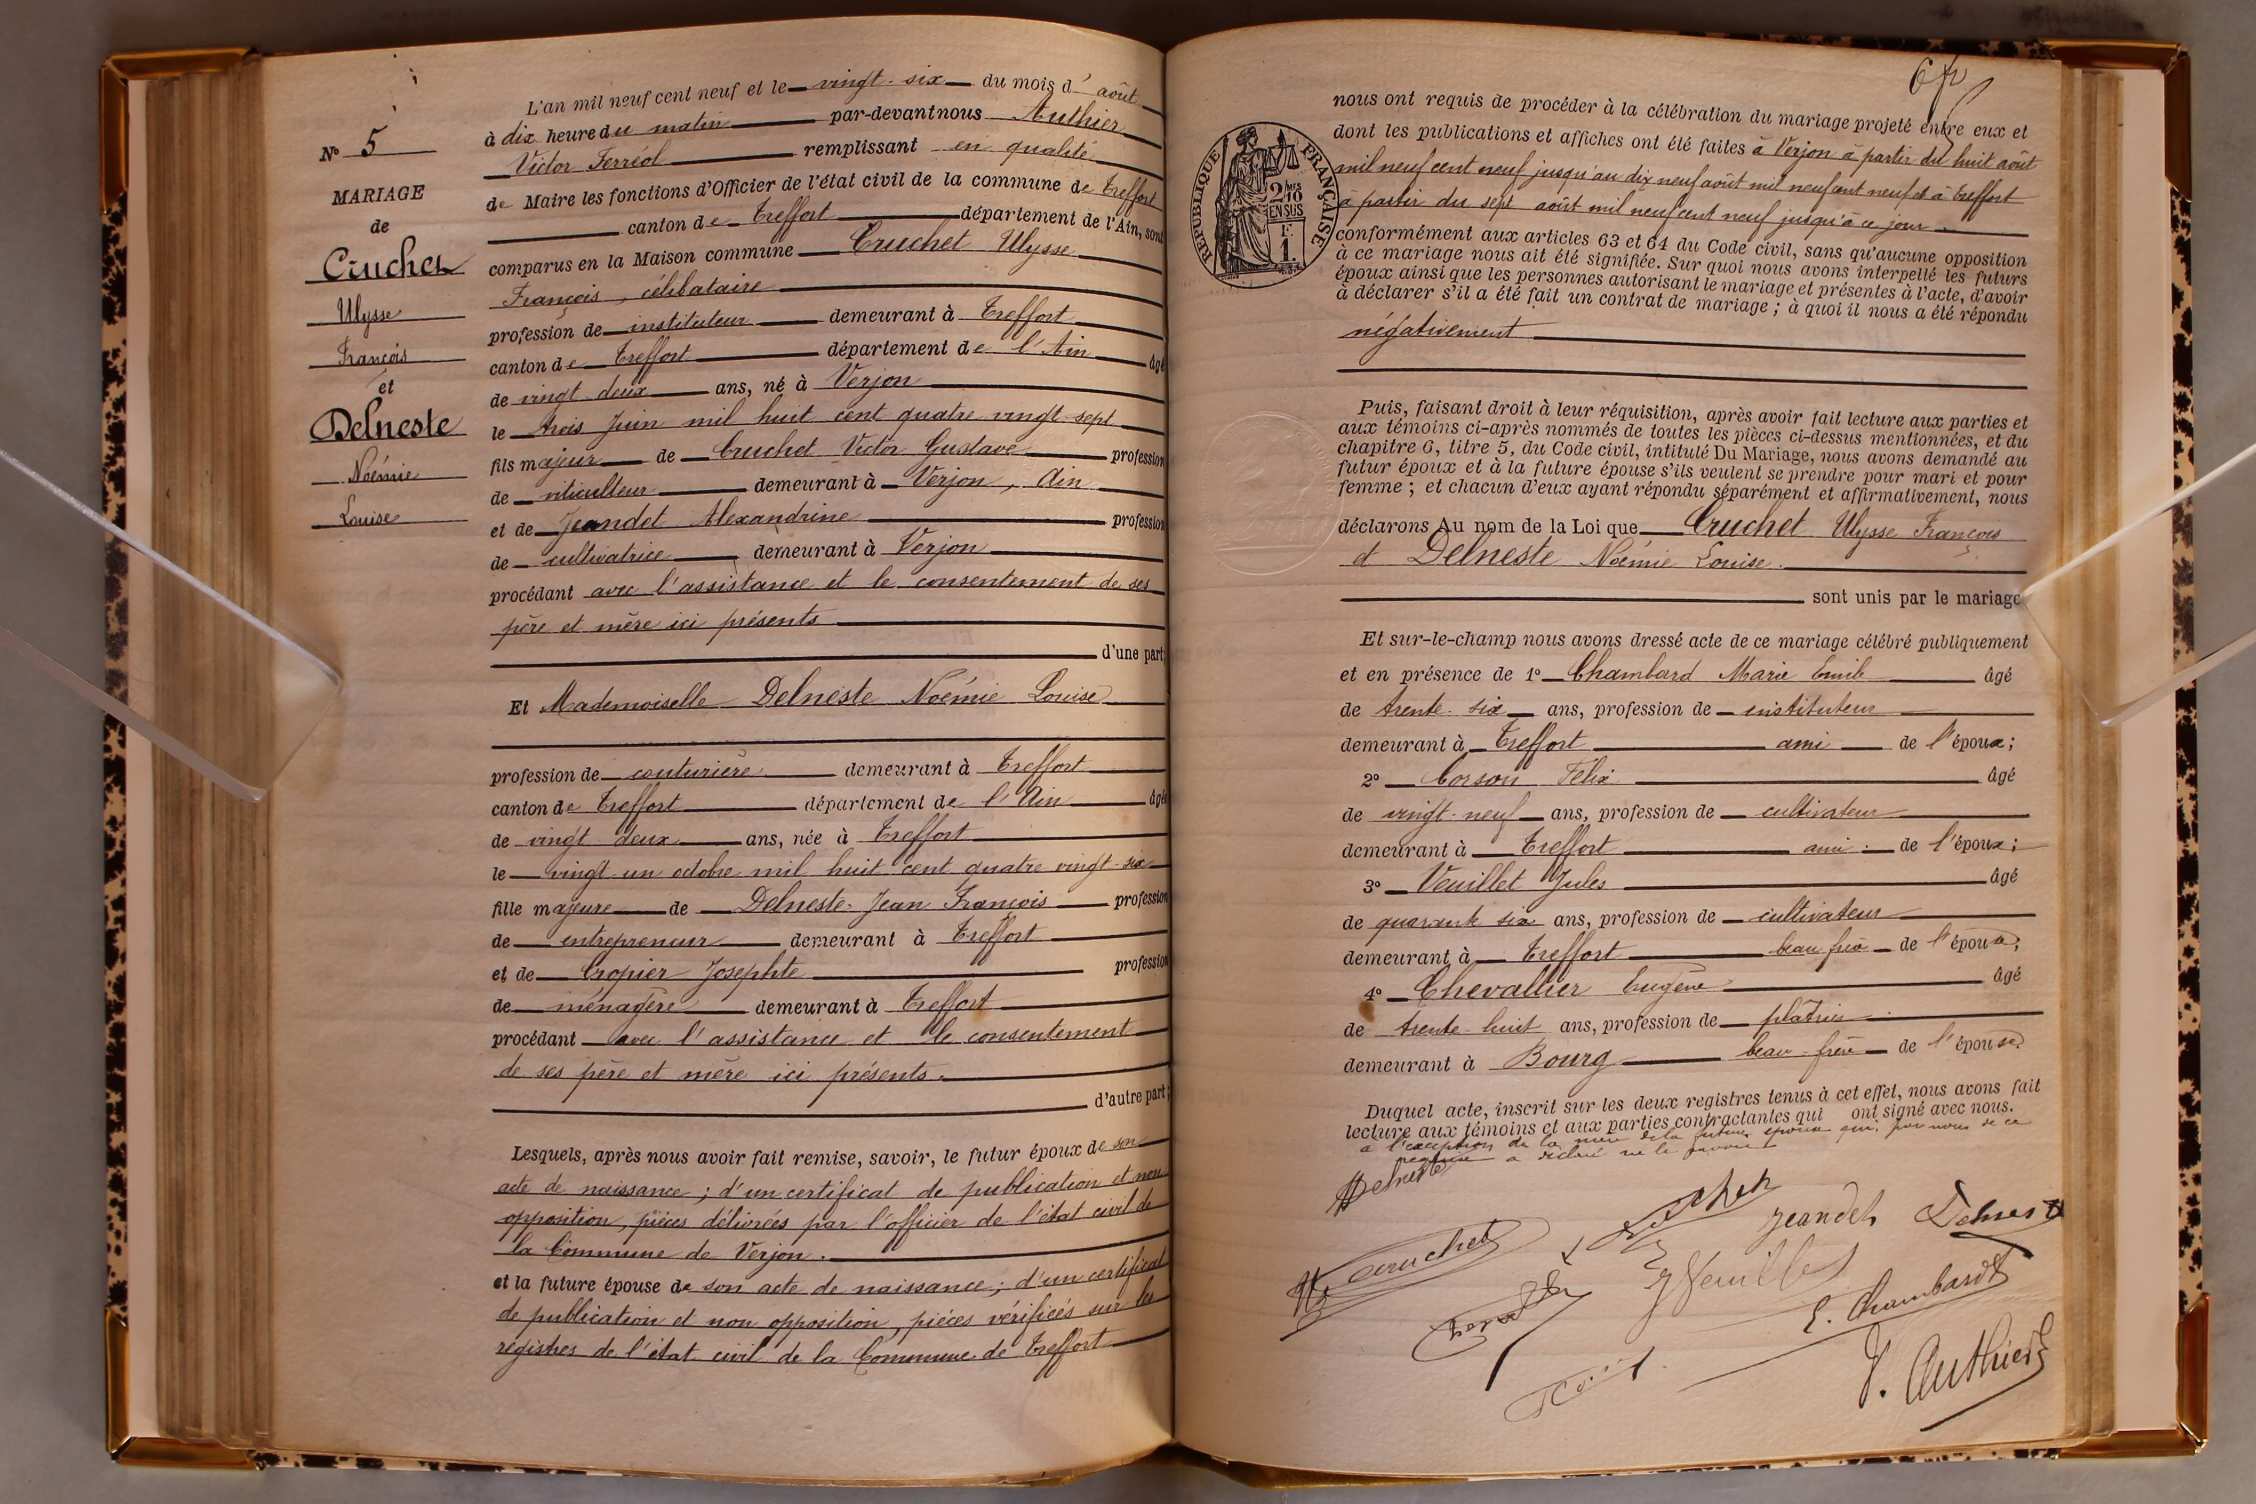 N° 5
MARIAGE
de
Cruchet
Ulysse
François
et
Delneste
Noémie
Louise
L'an mil neuf cent neuf et le vingt-six du mois d' août
à dix heure du matin par-devant nous Authier
Victor Ferréol remplissant en qualité
de Maire les fonctions d'Officier de l'état civil de la commune de Treffort
canton de Treffort département de l'Ain, sont
comparus en la Maison commune Cruchet Ulysse
François, célibataire
profession de instituteur demeurant à Treffort
canton de Treffort département de l'Ain âgé
de vingt-deux ans, né à Verjon
le trois Juin mil huit cent quatre vingt sept
fils majeur de Cruchet Victor Gustave profession
de viticulteur demeurant à Verjon, Ain
et de Jeandet Alexandrine profession
de cultivatrice demeurant à Verjon
procédant avec l'assistance et le consentement de ses
père et mère ici présents
d'une part;
Et Mademoiselle Delneste Noémie Louise
profession de couturière demeurant à Treffort
canton de Treffort département de l'Ain âgée
de vingt deux ans, née à Treffort
le vingt-un octobre mil huit cent quatre vingt-six
fille majeure de Delneste Jean François profession
de entrepreneur demeurant à Treffort
et de Cropier Josephte profession
de ménagère demeurant à Treffort
procédant avec l'assistance et le consentement
de ses père et mère ici présents.
d'autre part;
Lesquels, après nous avoir fait remise, savoir, le futur époux de son
acte de naissance; d'un certificat de publication et non
opposition, pièces délivrées par l'officier de l'état civil de
la Commune de Verjon.
et la future épouse de son acte de naissance; d'un certificat
de publication et non opposition, pièces vérifiées sur les
registres de l'état civil de la Commune de Treffort
RÉPUBLIQUE FRANÇAISE
2/10 MES
EN SUS
F.
1.
nous ont requis de procéder à la célébration du mariage projeté entre eux et
dont les publications et affiches ont été faites à Verjon à partir du huit août
mil neuf cent neuf jusqu'au dix neuf août mil neuf cent neuf et à Treffort
à partir du sept août mil neuf cent neuf jusqu'à ce jour
conformément aux articles 63 et 64 du Code civil, sans qu'aucune opposition
à ce mariage nous ait été signifiée. Sur quoi nous avons interpellé les futurs
époux ainsi que les personnes autorisant le mariage et présentes à l'acte, d'avoir
à déclarer s'il a été fait un contrat de mariage; à quoi il nous a été répondu
négativement
Puis, faisant droit à leur réquisition, après avoir fait lecture aux parties et
aux témoins ci-après nommés de toutes les pièces ci-dessus mentionnées, et du
chapitre 6, titre 5, du Code civil, intitulé Du Mariage, nous avons demandé au
futur époux et à la future épouse s'ils veulent se prendre pour mari et pour
femme; et chacun d'eux ayant répondu séparément et affirmativement, nous
déclarons Au nom de la Loi que Cruchet Ulysse François
et Delneste Noémie Louise.
sont unis par le mariage
Et sur-le-champ nous avons dressé acte de ce mariage célébré publiquement
et en présence de 1° Chambard Marie Emile âgé
de trente-six ans, profession de instituteur
demeurant à Treffort ami de l'époux;
2° Corson Félix âgé
de vingt-neuf ans, profession de cultivateur
demeurant à Treffort ami de l'époux;
3° Veuillet Jules âgé
de quarante six ans, profession de cultivateur
demeurant à Treffort beau frère de l'épouse;
4° Chevallier Eugène âgé
de trente-huit ans, profession de plâtrier
demeurant à Bourg beau-frère de l'épouse.
Duquel acte, inscrit sur les deux registres tenus à cet effet, nous avons fait
lecture aux témoins et aux parties contractantes qui ont signé avec nous.
à l'exception de la mère de la future épouse qui, par nous de ce
requise a déclaré ne le savoir
Delneste
Cruchet
Jeandet
Delneste
Cruchet
J Veuillet
E. Chambard
V. Authier